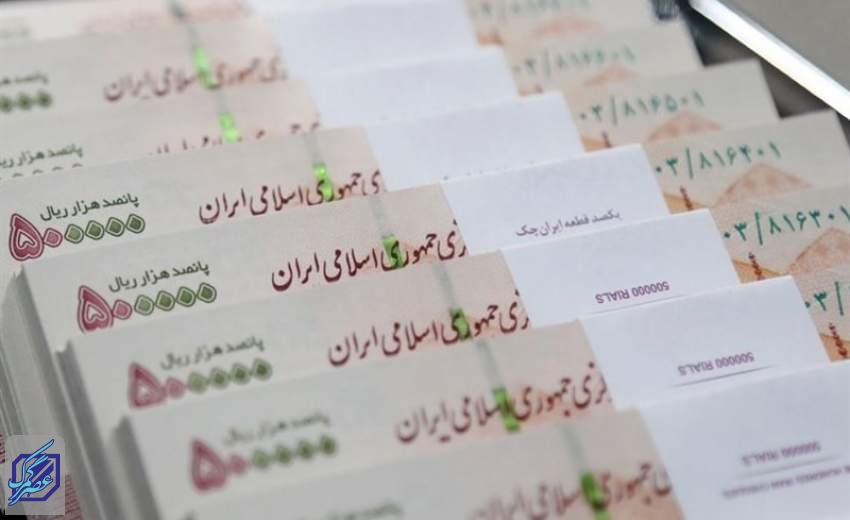 پانصد هزار ریال
جمهوری اسلامی ایران
۸۱۶۶۰۱
۰۳/۸۱۶۵۰۱
پانصد هزار ریال
۵۰۰۰۰۰
جمهوری اسلامی ایران
یکصد قطعه ایران چک
۰۳/۸۱۶۴۰۱
پانصد هزار ریال
۵۰۰۰۰۰
جمهوری اسلامی ایران
500000 RIALS
۰۳/۸۱۶۳۰۱
پانصد هزار ریال
۵۰۰۰۰۰
جمهوری اسلامی ایران
500000 RIALS
۰۳/
پانصد هزار ریال
۵۰۰۰۰۰
جمهوری اسلامی ایران
500000 RIALS
جمهوری اسلامی ایران